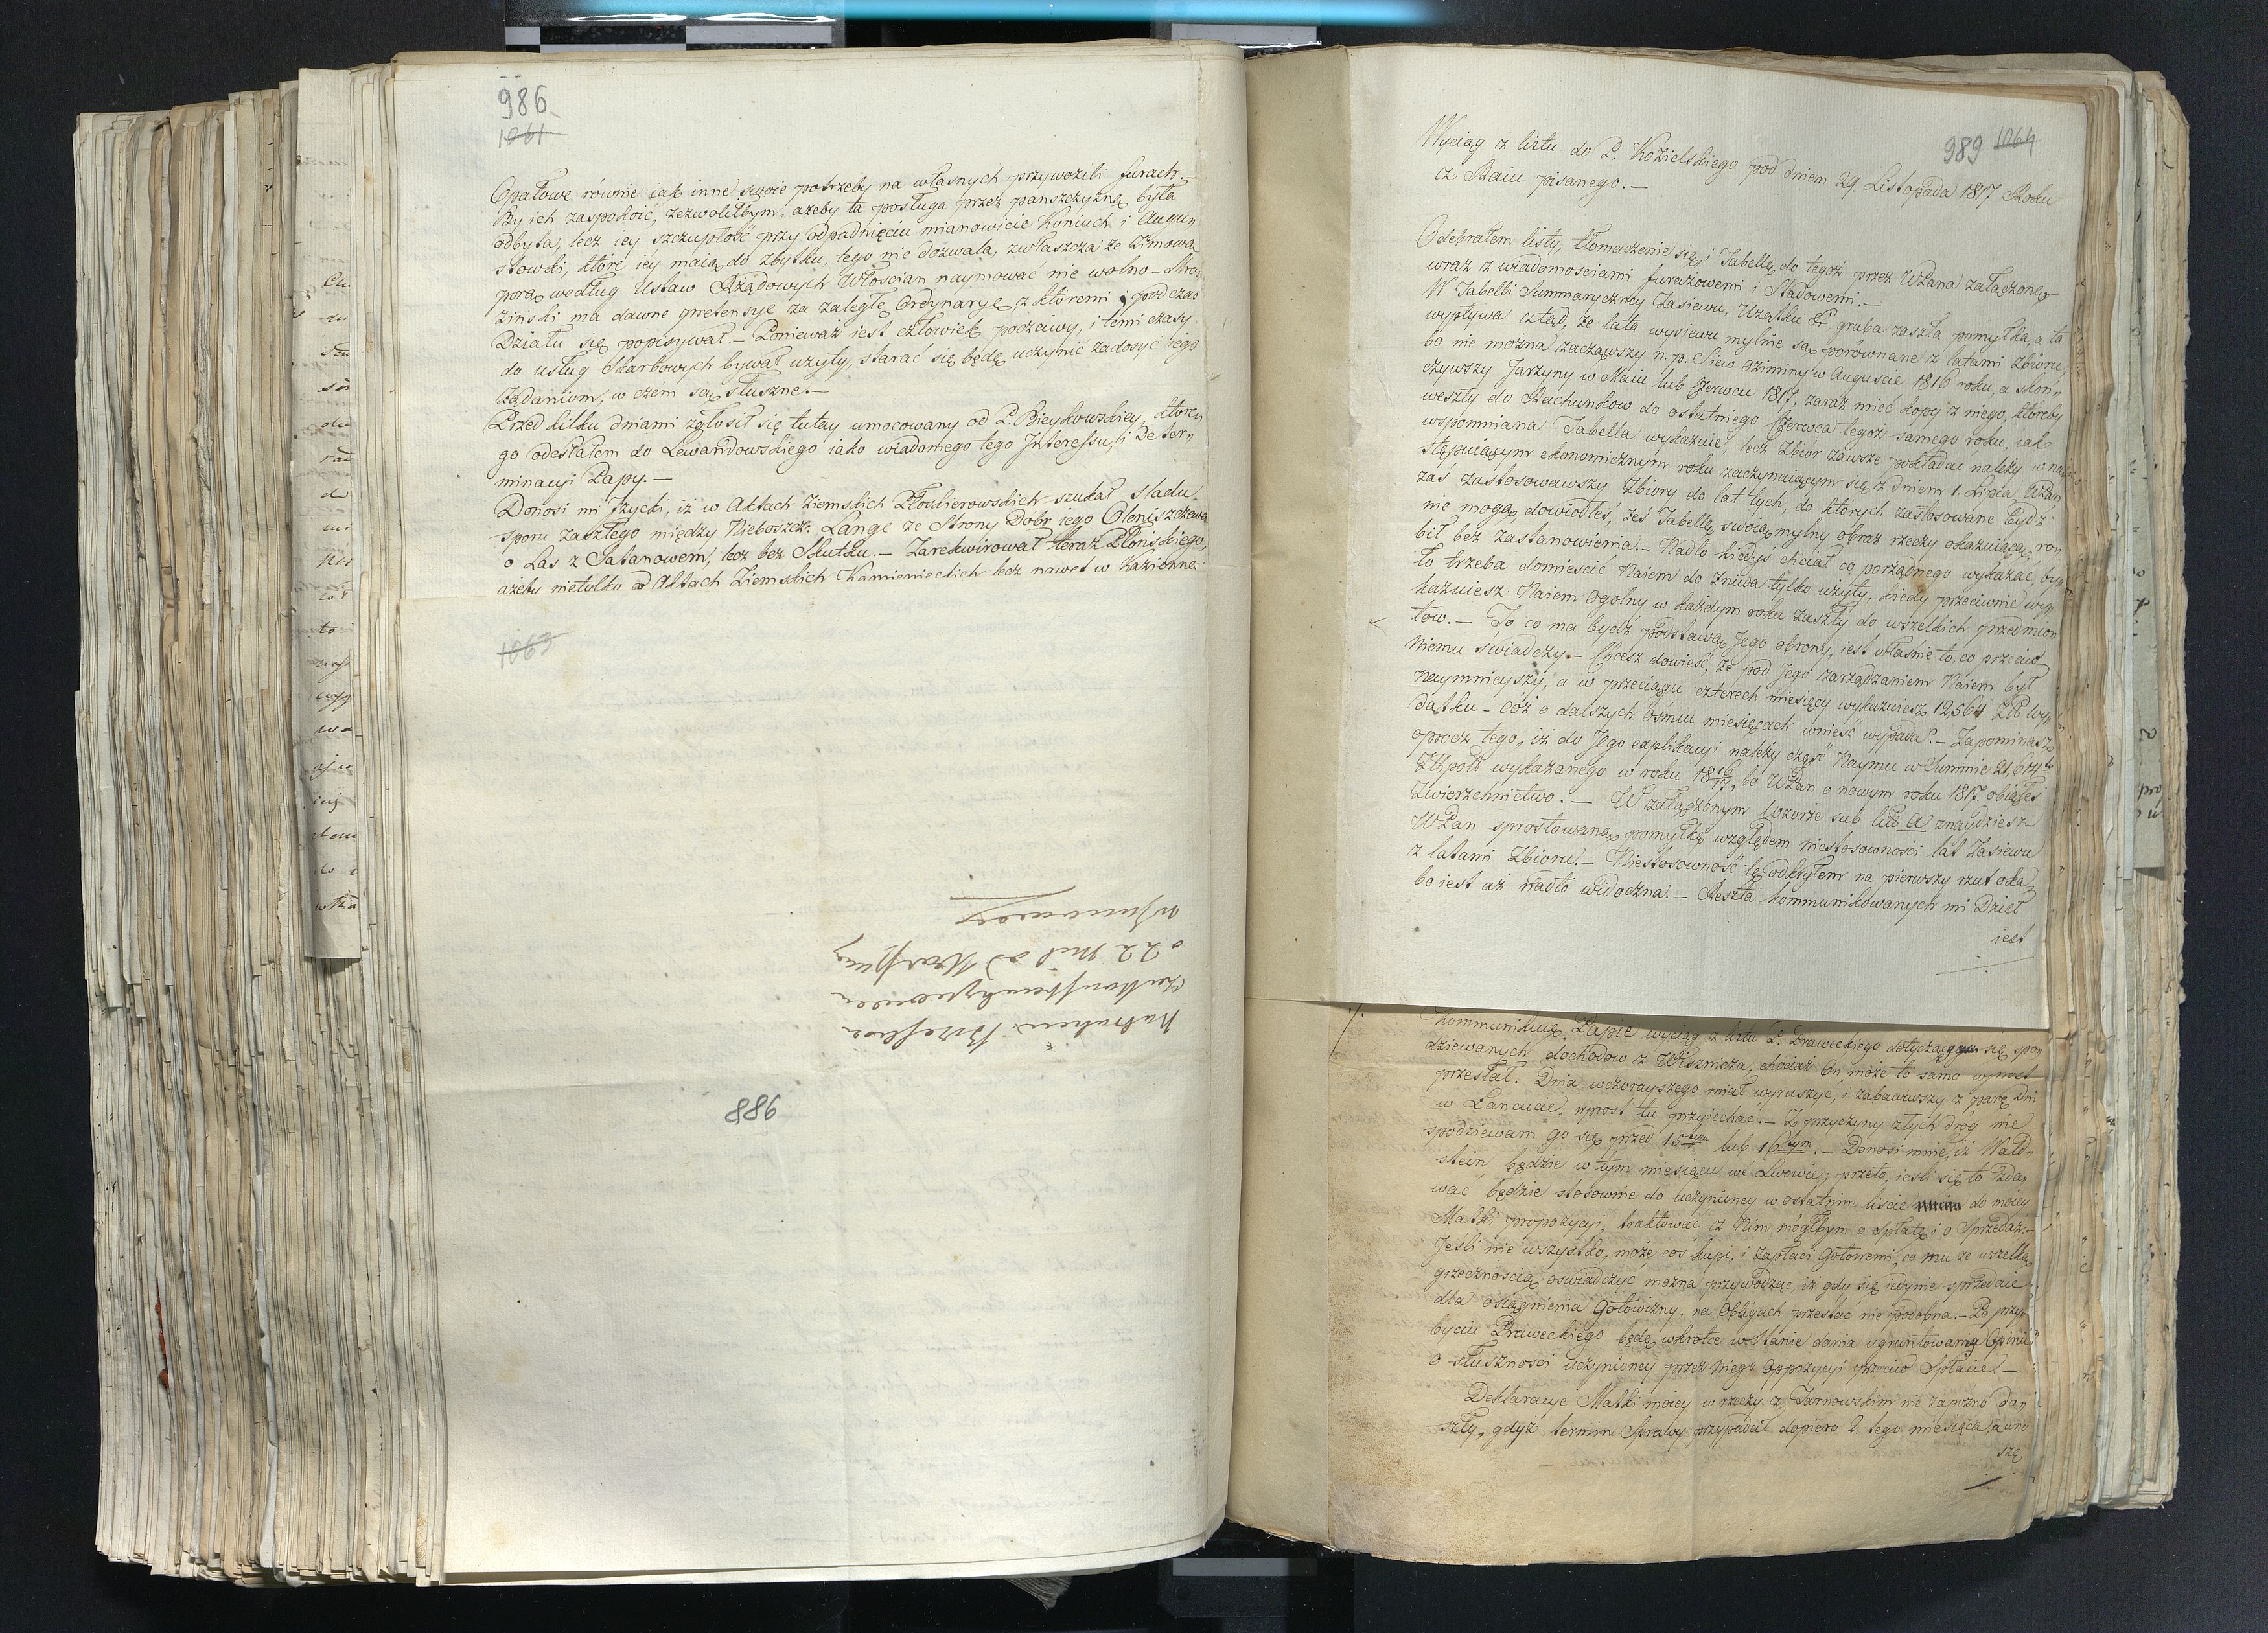 986
1061
Opałowe równie iak inne swoie potrzeby na własnych przywozili furach.—
By ich zaspokoić, zezwoliłbym, ażeby ta posługa przez panszczyznę była
odbyta, lecz iey szczupłość przy odpadnięciu mianowicie Koniuch i Augu„
stowki, które iey maią do zbytku, tego nie dozwala, zwłaszcza że Zimową
porą według Ustaw Rządowych Włoscian naymować nie wolno —
ziński ma dawne pretensye za zaległe Ordynarye, z któremi i podczas
Działu się popisywał.— Ponieważ iest człowiek poczciwy, i temi czasy
do usług Skarbowych bywał użyty, starać się będę uczynić zadosyć iego
żądaniom, w czém są słuszne.—
Przed kilku dniami zgłosił się tutay umocowany od P. Bieykowskiey, które„
go odesłałem do Lewandowskiego iako wiadomego tego Interessu, i Deter„
minacyi Papy.—
Donosi mi Jzycki, iż w Aktach Ziemskich Płoskierowskich szukał sladu
sporu zaszłego między Nieboszcz: Lange ze Strony Dóbr iego Oleniszczewa
o Las z Satanowem, lecz bez Skutku.— Zarekwirował teraz Płonskiego,
ażeby nietylko w Aktach Ziemskich Kamienieckich lecz nawet w
1063
o 22 Mil od
988
989 1064
Wyciąg z listu do P. Kozielskiego pod dniem 29. Listopada 1817 Roku
z Raiu pisanego.—
Odebrałem listy, tłomaczenie się, i Tabellę do tegoż przez WPana załączoną
wraz z wiadomosciami furażowemi i Stadowemi.—
W Tabelli Summaryczney Zasiewu, Użątku & gruba zaszła pomyłka, a ta
wypływa ztąd, że lata wysiewu mylnie są porównane z latami zbioru,
bo nie można zacząwszy n. p. Siew oziminy w Auguscie 1816 roku, a skoń„
czywszy Jarzyny w Maiu lub Czerwcu 1817, zaraz mieć kopy z niego, któreby
weszły do Rachunkow do ostatniego Czerwca tegoż samego roku, iak
wspomniana Tabella wykazuie, lecz Zbiór zawsze pokładać należy w na„
stępuiącym ekonomicznym roku zaczynaiącym się z dniem 1. Lipca, WPan
zaś zastosowawszy Zbiory do lat tych, do których zastosowane bydź
nie mogą, dowiodłeś, żeś Tabellę swoią mylny obraz rzeczy okazuiącą, ro„
bił bez zastanowienia.— Nadto kiedyś chciał co porządnego wykazać, by„
ło trzeba domieścić Naiem do żniwa tylko użyty, kiedy przeciwnie wy„
kazuiesz Naiem ogolny w każdym roku zaszły do wszelkich przedmio„
tow.— To co ma bydź podstawą Jego obrony, iest właśnie to, co przeciw
Niemu świadczy.— Chcesz dowieść, że pod Jego zarządzaniem Naiem był
naymnieyszy, a w przeciągu czterech miesięcy wykazuiesz 12,564 ZłP wy„
datku — cóż o dalszych ośmiu miesięcach wnieść wypada?— Zapominasz
oprocz tego, iż do Jego explikacyi należy część Naymu w Summie 21,674
Złłpols wykazanego w roku 18 16/17, bo WPan o nowym roku 1817. obiąłeś
Zwierzchnictwo.— W załączonym wzorze sub litt: A znaydziesz
WPan sprostowaną pomyłkę względem niestosowności lat Zasiewu
z latami Zbioru.— Niestosowność tę odkryłem na pierwszy rzut oka,
bo iest aż nadto widoczna.— Reszta kommunikowanych mi Dzieł
iest
Kommunikuię Papie wyciąg z listu P. Draweckiego dotyczący się spo„
dziewanych dochodow z Wisznicza, chociaż On może to samo wprost
przesłał. Dnia wczorayszego miał wyruszyć, i zabawiwszy z parę dni
w Łancucie, wprost tu przyiechać.— Z przyczyny złych dróg nie
spodziewam go się przed 15tym lub 16tym.— Donosi mnie, iż Wald„
stein będzie w tym miesiącu we Lwowie; przeto, iesli się to zda„
wać będzie stosownie do uczynioney w ostatnim liście do moiey
Matki propozycyi, traktować z Nim mógłbym o Spłatę i o Sprzedaż.—
Jeśli nie wszystko, może coś kupi, i zapłaci Gotowemi, co mu ze wszelką
grzecznością oswiadczyć można przywodząc, iż gdy się iedynie sprzedaie
dla osiągnienia Gotowizny, na Obligach przestać nie podobna.— Po przy„
byciu Draweckiego będę wkrotce w Stanie dania ugruntowaney Opinii
o słuszności uczynioney przez niego Oppozycyi przeciw Spłacie.—
Deklaracye Matki moiey w rzeczy z Tarnowskim nie zapozno do„
szły, gdyż termin Sprawy przypadał dopiero 2. tego miesiąca, a wno
szę